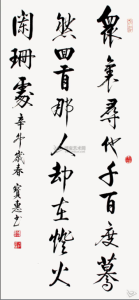 衆裏尋他千百度驀
然回首那人却在燈火
闌珊處 辛卯歲春 寶惠书